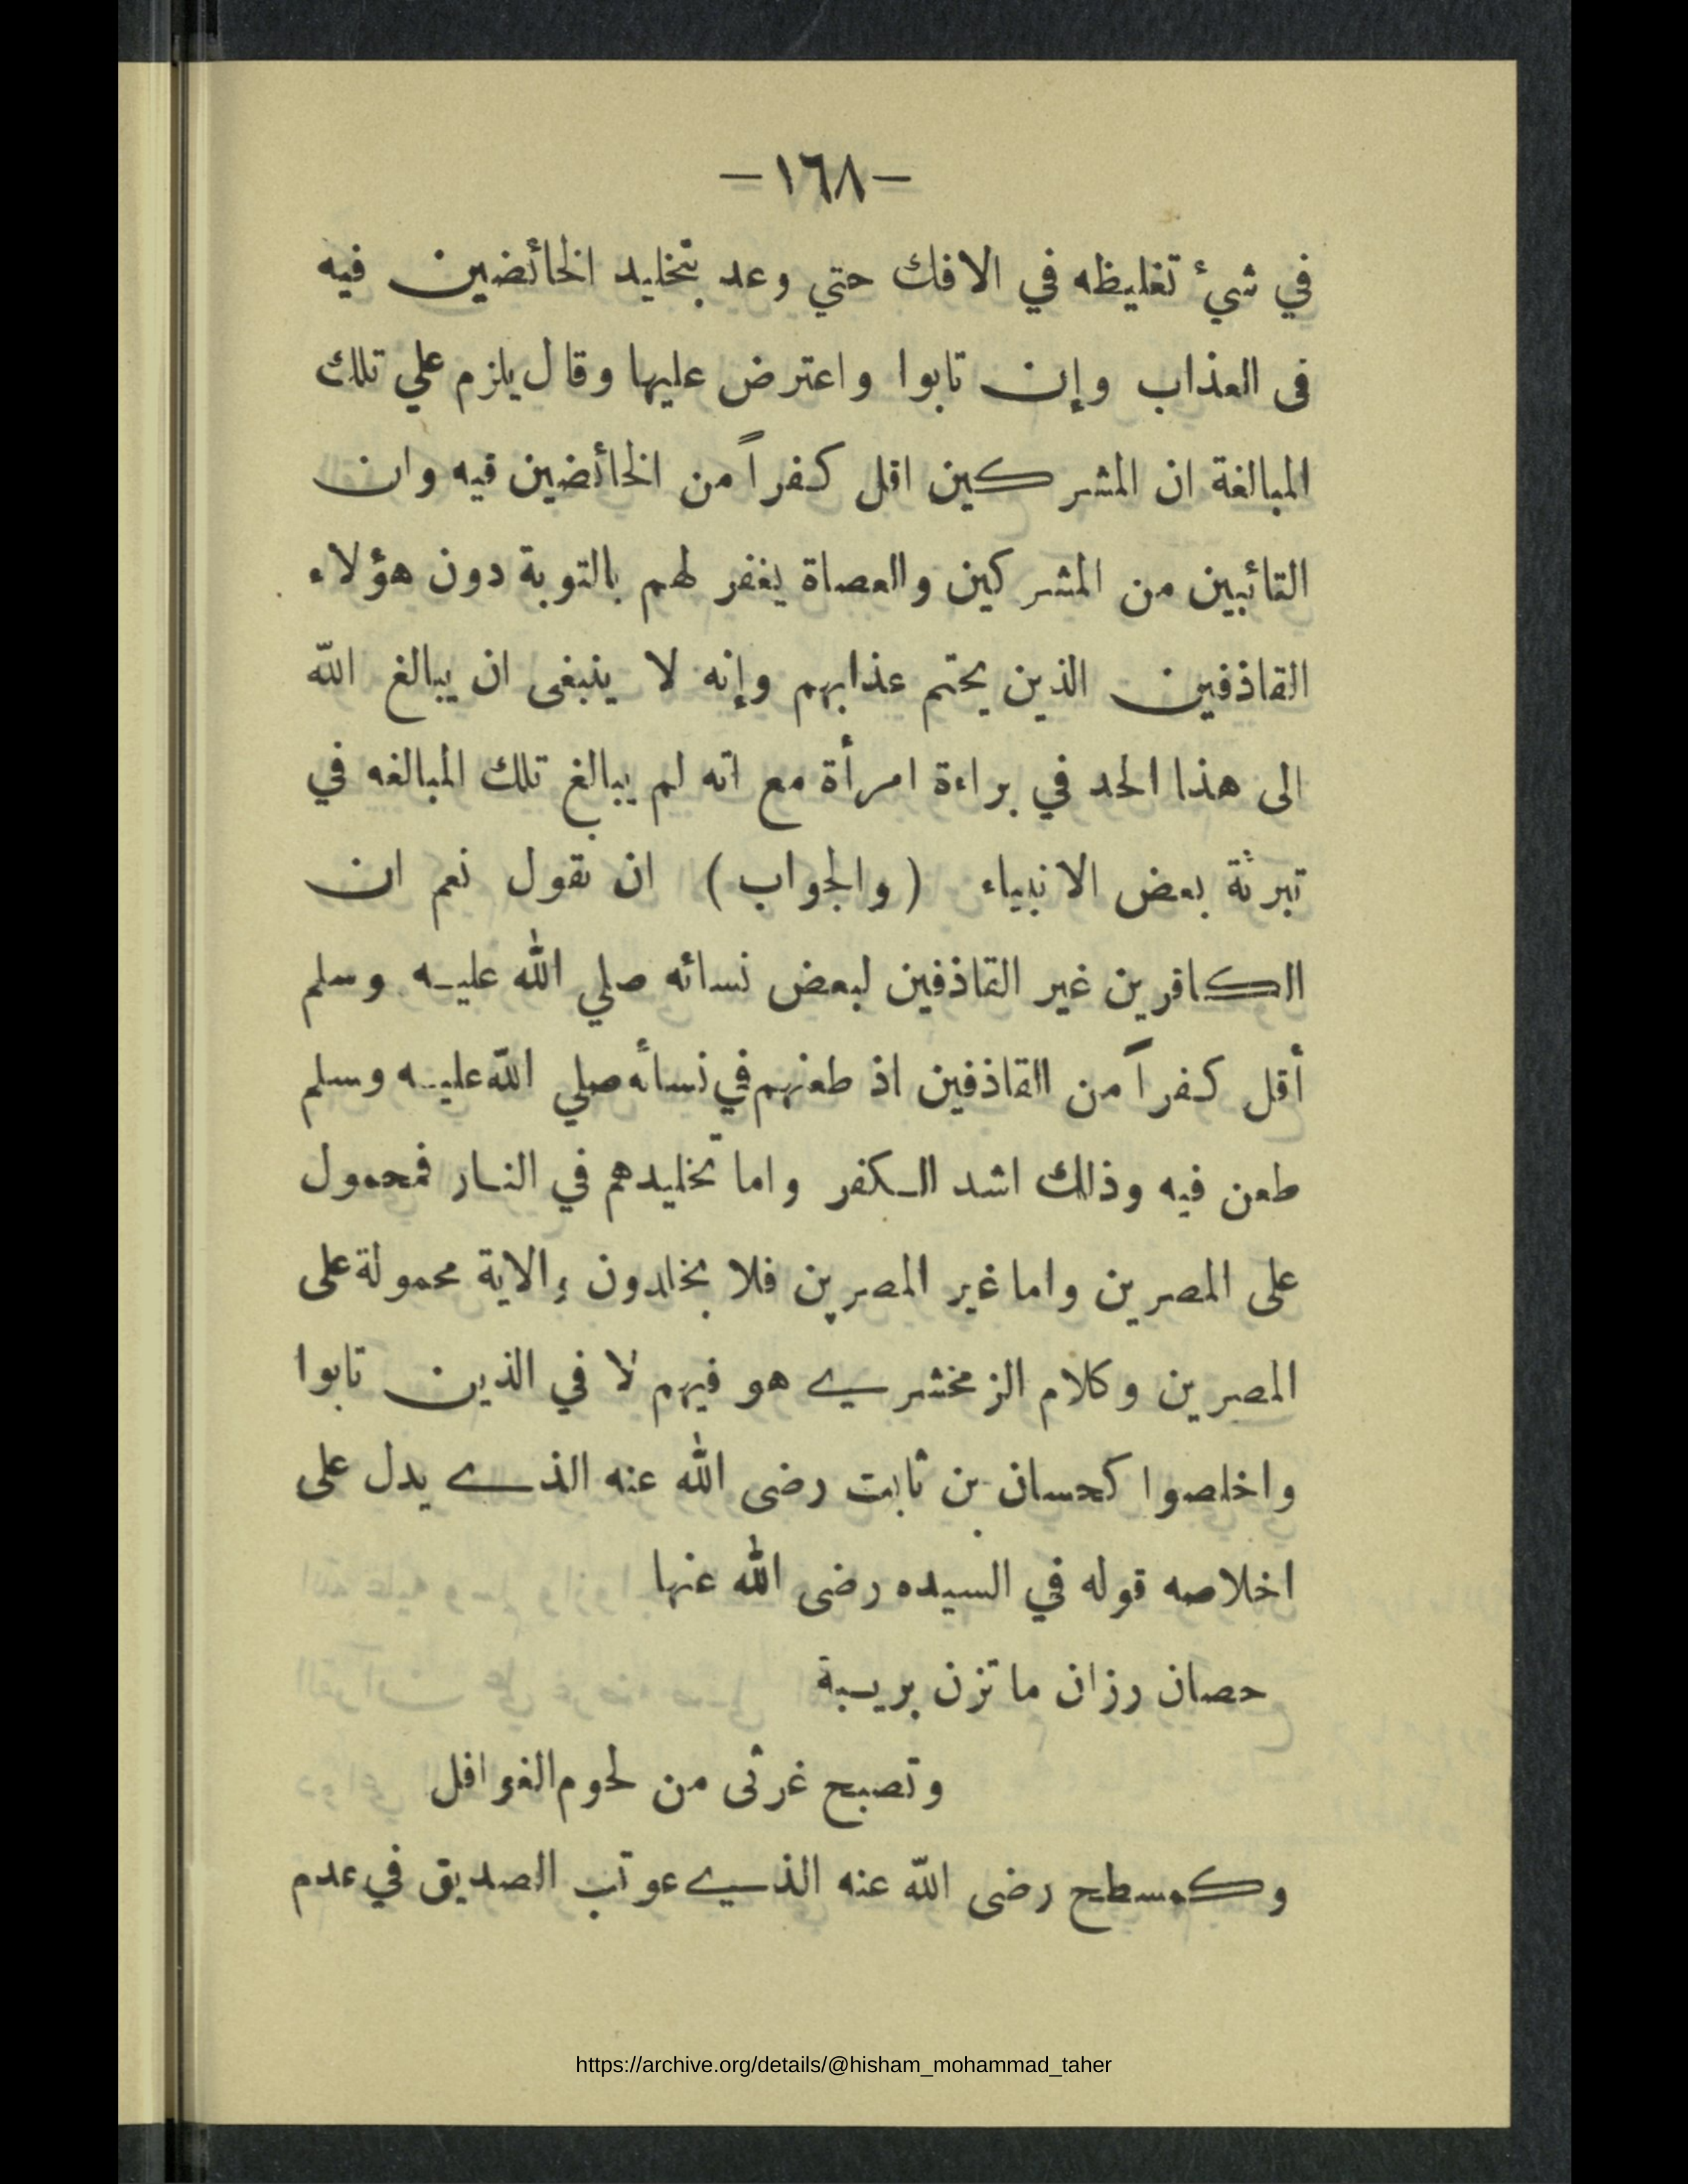 -١٦٨-
في شيء تغليظه في الافك حتي وعد بتخليد الخائضين فيه
فى العذاب وإن تابوا واعترض عليها وقال يلزم علي تلك
المبالغة ان المشركين اقل كفراً من الخائضين فيه وان
التائبين من المشركين والعصاة يغفر لهم بالتوبة دون هؤلاء
القاذفين الذين يحتم عذابهم وإنه لا ينبغى ان يبالغ الله
الى هذا الحد في براءة امرأة مع انه لم يبالغ تلك المبالغه في
تبرئة بعض الانبياء (والجواب) ان نقول نعم ان
الكافرين غير القاذفين لبعض نسائه صلي الله عليه وسلم
أقل كفراً من القاذفين اذ طعنهم في نسائه صلي الله عليه وسلم
طعن فيه وذلك اشد الكفر واما تخليدهم في النار فمحمول
على المصرين واما غير المصرين فلا يخلدون والاية محمولة على
المصرين وكلام الزمخشري هو فيهم لا في الذين تابوا
واخلصوا كحسان بن ثابت رضى الله عنه الذي يدل على
اخلاصه قوله في السيده رضى الله عنها
حصان رزان ما تزن بريبة
وتصبح غرثى من لحوم الغوافل
وكمسطح رضى الله عنه الذي عوتب الصديق في عدم
https://archive.org/details/@hisham_mohammad_taher